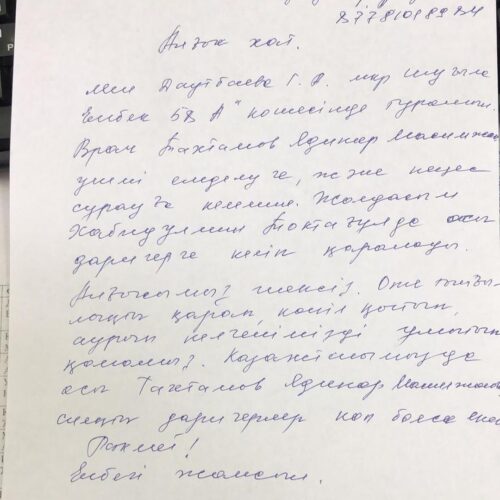 87781019984
Алғыс хат.
Мен Даутбаева Г. А. мкр Шуғыла
Еңбек 58 А" көшесінде тұрамын.
Врач Тахтамов Ядикар
үшін емделуге, және кеңес
сұрауға келемін. Жолдасым
Хабидулмин Токтағулда осы
дәрігерге келіп қаралады.
Алғысымыз шексіз. Өте тығы
лақын қарап, көңіл қосып,
ауырып келгенімізді ұмытып
қаламыз. Казақстанымызда
осы Тахтамов Ядикар
сияқты дәрігерлер көп болса екен
Рахмет!
Еңбегі жансын.